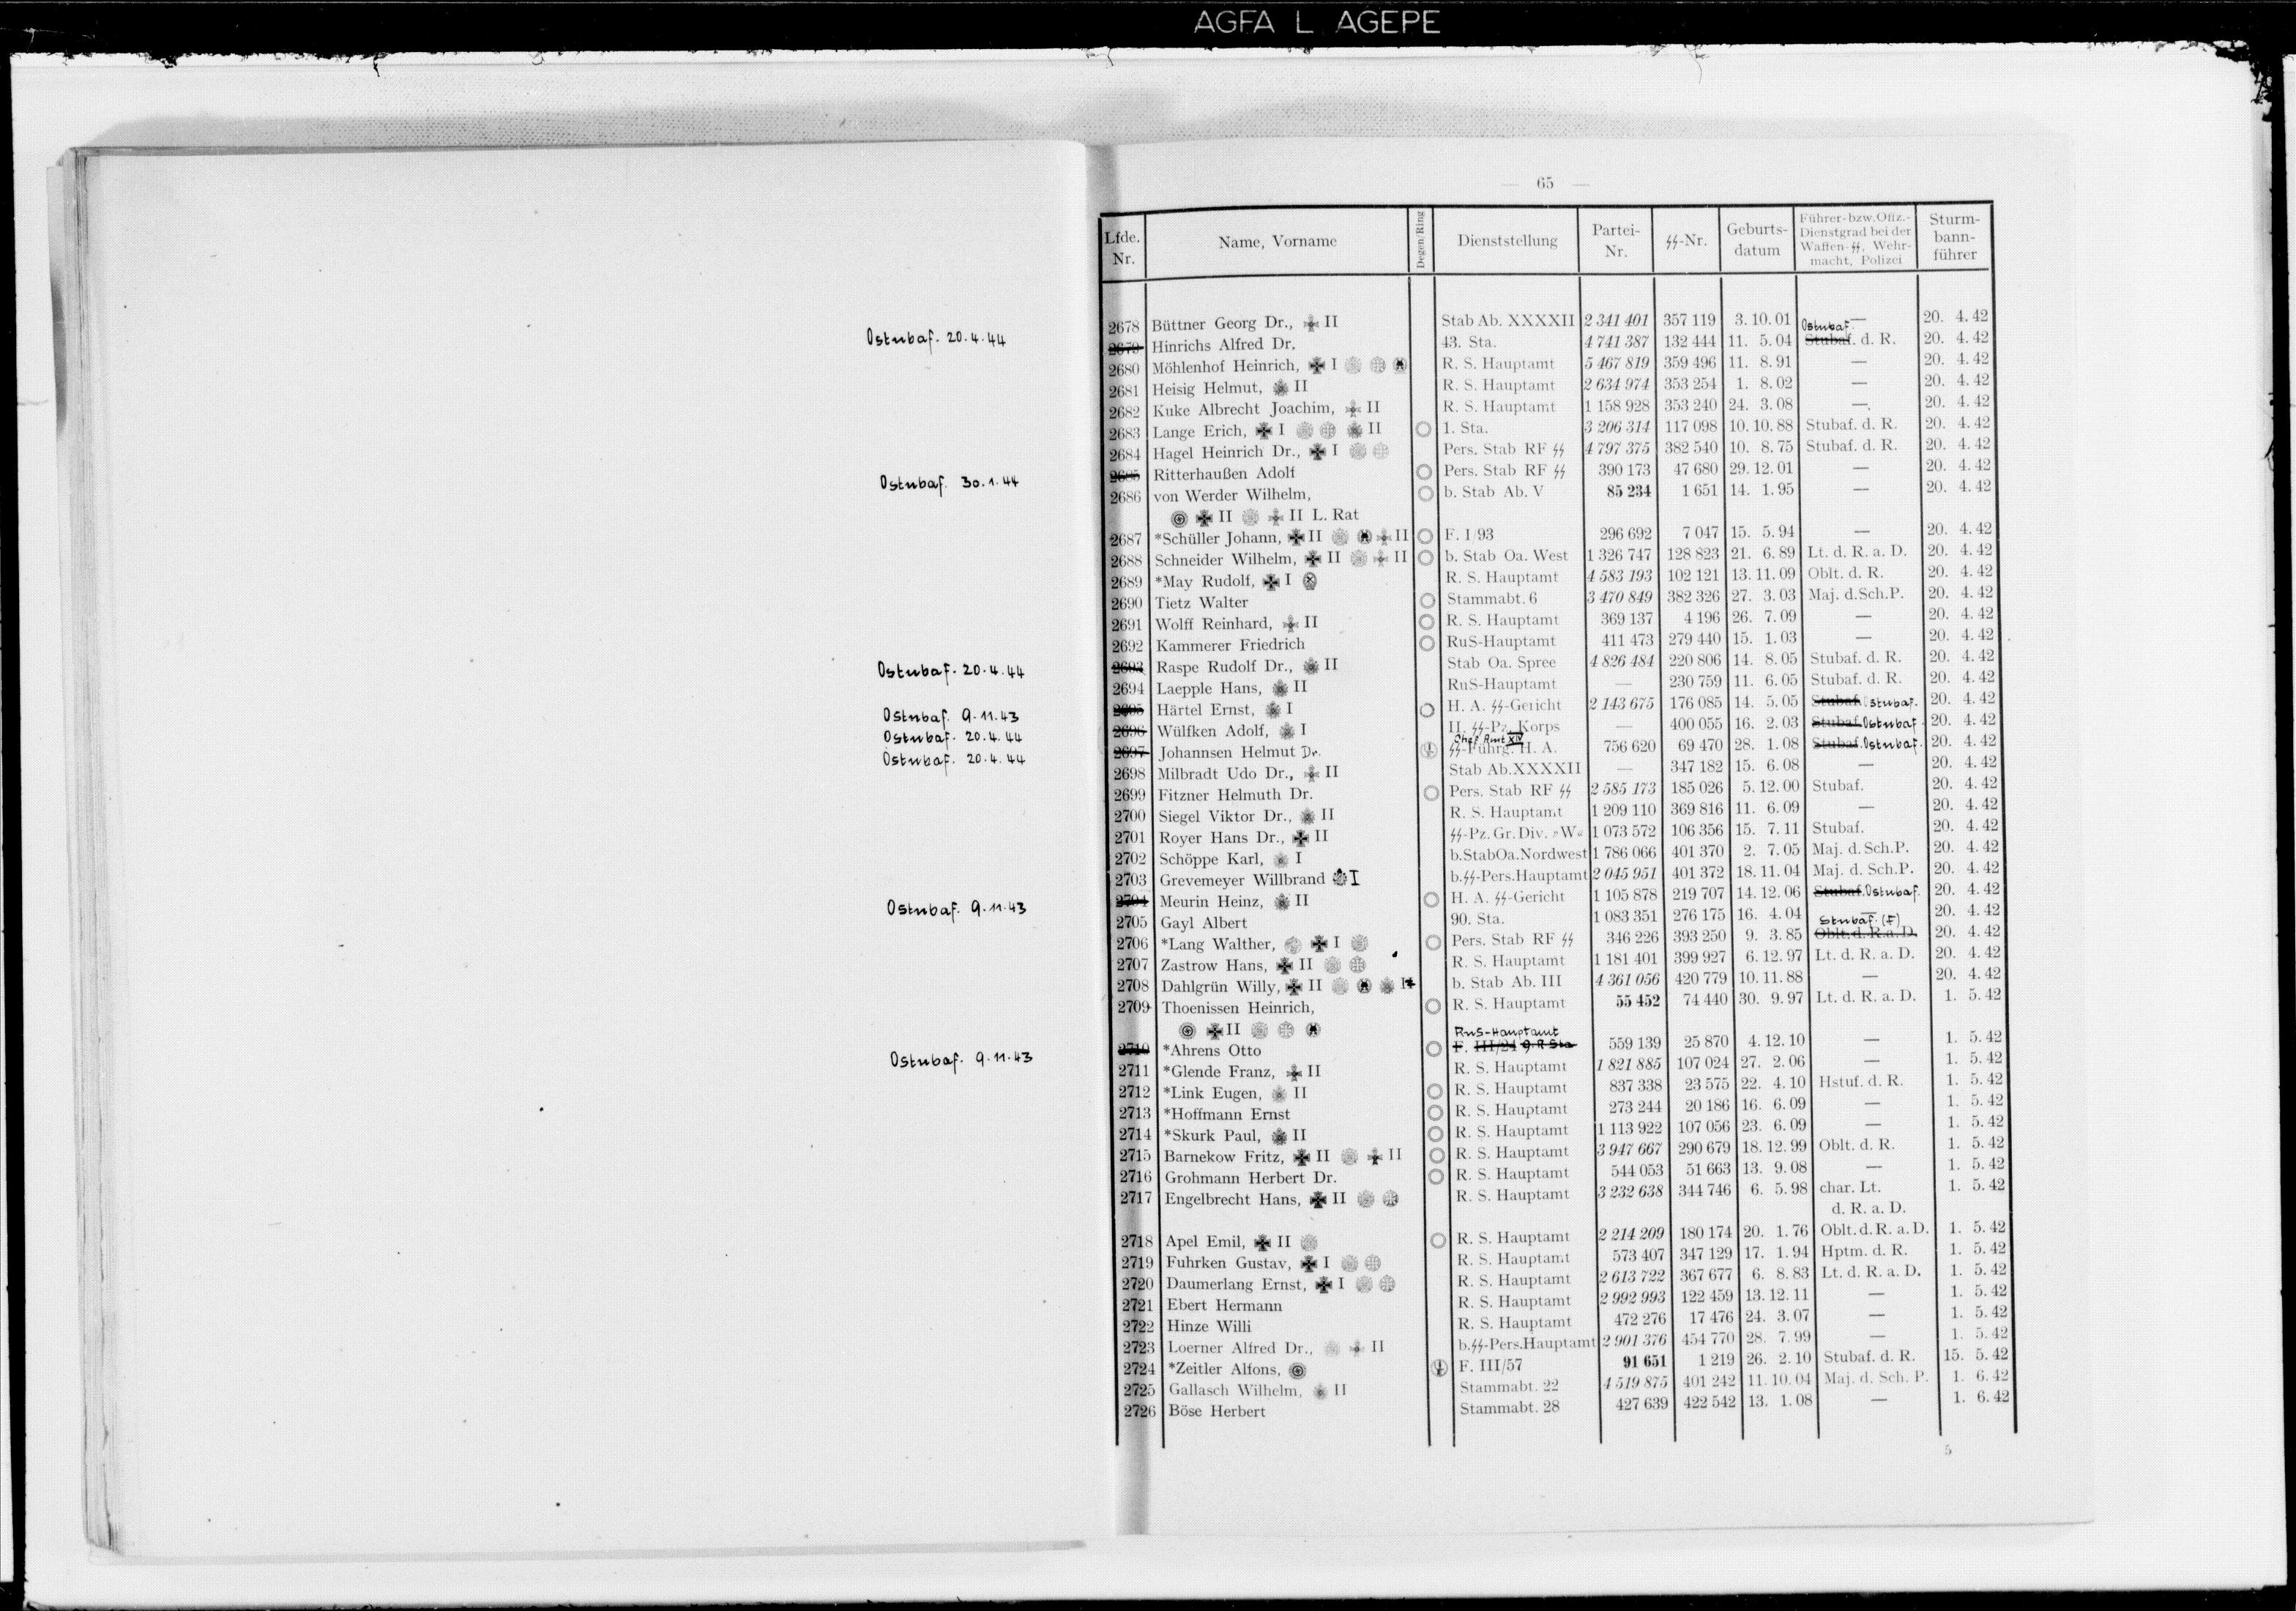 AGFA L AGEPE
— 65 —
Lfde. Nr. | Name, Vorname | Degen/Ring | Dienststellung | Partei-Nr. | ᛋᛋ-Nr. | Geburts-datum | Führer- bzw. Offz.-Dienstgrad bei der Waffen-ᛋᛋ, Wehr-macht, Polizei | Sturm-bann-führer
2678 Büttner Georg Dr., II Stab Ab. XXXXII 2 341 401 357 119 3. 10. 01 — 20. 4. 42
Ostubaf. 20.4.44 2679 Hinrichs Alfred Dr. 43. Sta. 4 741 387 132 444 11. 5. 04 Ostubaf. Stubaf. d. R. 20. 4. 42
2680 Möhlenhof Heinrich, I R. S. Hauptamt 5 467 819 359 496 11. 8. 91 — 20. 4. 42
2681 Heisig Helmut, II R. S. Hauptamt 2 634 974 353 254 1. 8. 02 — 20. 4. 42
2682 Kuke Albrecht Joachim, II R. S. Hauptamt 1 158 928 353 240 24. 3. 08 — 20. 4. 42
2683 Lange Erich, I II 1. Sta. 3 206 314 117 098 10. 10. 88 Stubaf. d. R. 20. 4. 42
2684 Hagel Heinrich Dr., I Pers. Stab RF ᛋᛋ 4 797 375 382 540 10. 8. 75 Stubaf. d. R. 20. 4. 42
Ostubaf. 30.1.44 2685 Ritterhaußen Adolf Pers. Stab RF ᛋᛋ 390 173 47 680 29. 12. 01 — 20. 4. 42
2686 von Werder Wilhelm, b. Stab Ab. V 85 234 1 651 14. 1. 95 — 20. 4. 42
II II L. Rat
2687 *Schüller Johann, II II F. I/93 296 692 7 047 15. 5. 94 — 20. 4. 42
2688 Schneider Wilhelm, II II b. Stab Oa. West 1 326 747 128 823 21. 6. 89 Lt. d. R. a. D. 20. 4. 42
2689 *May Rudolf, I R. S. Hauptamt 4 583 193 102 121 13. 11. 09 Oblt. d. R. 20. 4. 42
2690 Tietz Walter Stammabt. 6 3 470 849 382 326 27. 3. 03 Maj. d.Sch.P. 20. 4. 42
2691 Wolff Reinhard, II R. S. Hauptamt 369 137 4 196 26. 7. 09 — 20. 4. 42
2692 Kammerer Friedrich RuS-Hauptamt 411 473 279 440 15. 1. 03 — 20. 4. 42
Ostubaf. 20.4.44 2693 Raspe Rudolf Dr., II Stab Oa. Spree 4 826 484 220 806 14. 8. 05 Stubaf. d. R. 20. 4. 42
2694 Laepple Hans, II RuS-Hauptamt — 230 759 11. 6. 05 Stubaf. d. R. 20. 4. 42
Ostubaf. 9.11.43 2695 Härtel Ernst, I H. A. ᛋᛋ-Gericht 2 143 675 176 085 14. 5. 05 Stubaf. Ostubaf. 20. 4. 42
Ostubaf. 20.4.44 2696 Wülfken Adolf, I II. ᛋᛋ-Pz. Korps — 400 055 16. 2. 03 Stubaf. Ostubaf. 20. 4. 42
Ostubaf. 20.4.44 2697 Johannsen Helmut Dr. Chef Amt XIV ᛋᛋ-Führg. H. A. 756 620 69 470 28. 1. 08 Stubaf. Ostubaf. 20. 4. 42
2698 Milbradt Udo Dr., II Stab Ab.XXXXII — 347 182 15. 6. 08 — 20. 4. 42
2699 Fitzner Helmuth Dr. Pers. Stab RF ᛋᛋ 2 585 173 185 026 5. 12. 00 Stubaf. 20. 4. 42
2700 Siegel Viktor Dr., II R. S. Hauptamt 1 209 110 369 816 11. 6. 09 — 20. 4. 42
2701 Royer Hans Dr., II ᛋᛋ-Pz. Gr. Div. »W« 1 073 572 106 356 15. 7. 11 Stubaf. 20. 4. 42
2702 Schöppe Karl, I b.StabOa.Nordwest 1 786 066 401 370 2. 7. 05 Maj. d. Sch.P. 20. 4. 42
2703 Grevemeyer Willbrand I b.ᛋᛋ-Pers.Hauptamt 2 045 951 401 372 18. 11. 04 Maj. d. Sch.P. 20. 4. 42
Ostubaf. 9.11.43 2704 Meurin Heinz, II H. A. ᛋᛋ-Gericht 1 105 878 219 707 14. 12. 06 Stubaf. Ostubaf. 20. 4. 42
2705 Gayl Albert 90. Sta. 1 083 351 276 175 16. 4. 04 — 20. 4. 42
2706 *Lang Walther, I Pers. Stab RF ᛋᛋ 346 226 393 250 9. 3. 85 Stubaf. (F) Oblt. d. R.a.D. 20. 4. 42
2707 Zastrow Hans, II R. S. Hauptamt 1 181 401 399 927 6. 12. 97 Lt. d. R. a. D. 20. 4. 42
2708 Dahlgrün Willy, II b. Stab Ab. III 4 361 056 420 779 10. 11. 88 — 20. 4. 42
2709 Thoenissen Heinrich, R. S. Hauptamt 55 452 74 440 30. 9. 97 Lt. d. R. a. D. 1. 5. 42
II
Ostubaf. 9.11.43 2710 *Ahrens Otto RuS-Hauptamt F. III/24 559 139 25 870 4. 12. 10 — 1. 5. 42
2711 *Glende Franz, II R. S. Hauptamt 1 821 885 107 024 27. 2. 06 — 1. 5. 42
2712 *Link Eugen, II R. S. Hauptamt 837 338 23 575 22. 4. 10 Hstuf. d. R. 1. 5. 42
2713 *Hoffmann Ernst R. S. Hauptamt 273 244 20 186 16. 6. 09 — 1. 5. 42
2714 *Skurk Paul, II R. S. Hauptamt 1 113 922 107 056 23. 6. 09 — 1. 5. 42
2715 Barnekow Fritz, II II R. S. Hauptamt 3 947 667 290 679 18. 12. 99 Oblt. d. R. 1. 5. 42
2716 Grohmann Herbert Dr. R. S. Hauptamt 544 053 51 663 13. 9. 08 — 1. 5. 42
2717 Engelbrecht Hans, II R. S. Hauptamt 3 232 638 344 746 6. 5. 98 char. Lt. 1. 5. 42
d. R. a. D.
2718 Apel Emil, II R. S. Hauptamt 2 214 209 180 174 20. 1. 76 Oblt. d. R. a. D. 1. 5. 42
2719 Fuhrken Gustav, I R. S. Hauptamt 573 407 347 129 17. 1. 94 Hptm. d. R. 1. 5. 42
2720 Daumerlang Ernst, I R. S. Hauptamt 2 613 722 367 677 6. 8. 83 Lt. d. R. a. D. 1. 5. 42
2721 Ebert Hermann R. S. Hauptamt 2 992 993 122 459 13. 12. 11 — 1. 5. 42
2722 Hinze Willi R. S. Hauptamt 472 276 17 476 24. 3. 07 — 1. 5. 42
2723 Loerner Alfred Dr., II b.ᛋᛋ-Pers.Hauptamt 2 901 376 454 770 28. 7. 99 — 1. 5. 42
2724 *Zeitler Alfons, F. III/57 91 651 1 219 26. 2. 10 Stubaf. d. R. 15. 5. 42
2725 Gallasch Wilhelm, II Stammabt. 22 4 519 875 401 242 11. 10. 04 Maj. d. Sch. P. 1. 6. 42
2726 Böse Herbert Stammabt. 28 427 639 422 542 13. 1. 08 — 1. 6. 42
5